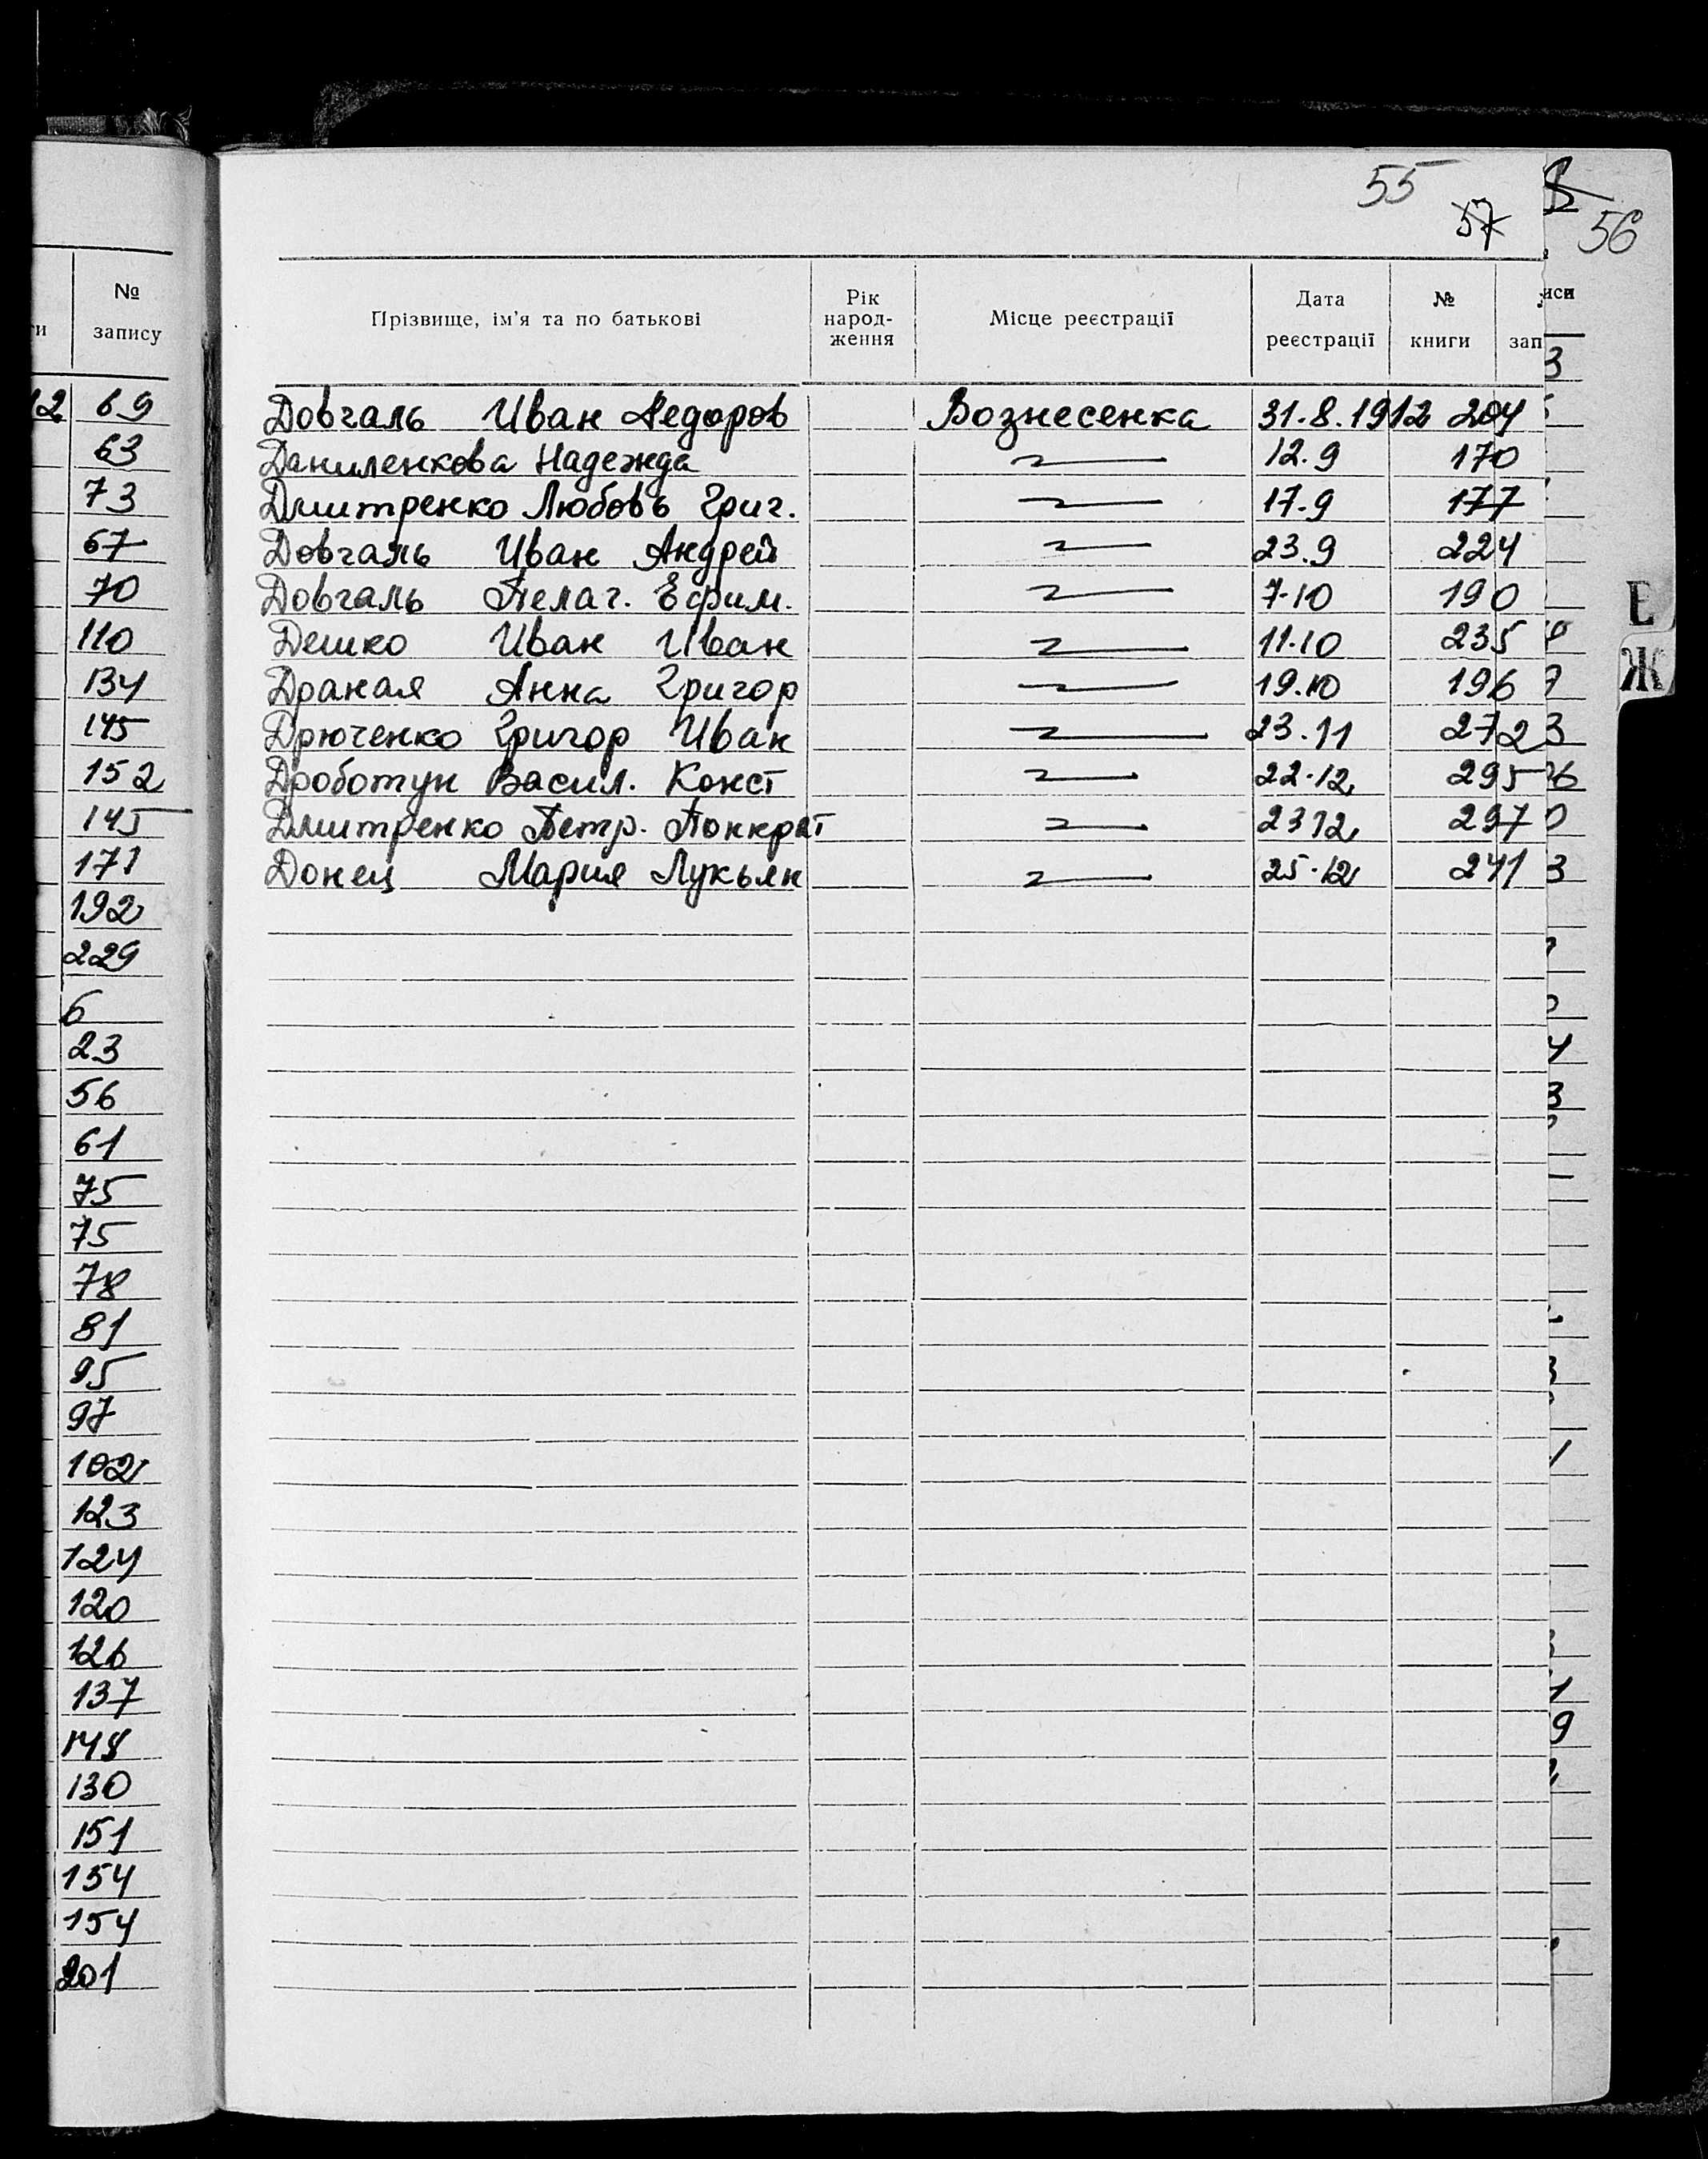 55
57
56
№
запису
Прізвище, ім'я та по батькові
Рік народ-ження
Місце реєстрації
Дата реєстрації
№ книги
зап
12 69
63
73
67
70
110
134
145
152
145
171
192
229
6
23
56
61
75
75
78
81
95
97
102
123
124
120
126
137
148
130
151
154
154
201
Довгаль Иван Федоров Вознесенка 31.8.1912 204
Даниленкова Надежда 12.9 170
Дмитренко Любовь Григ. 17.9 177
Довгаль Иван Андрей 23.9 224
Довгаль Пелаг. Ефим. 7.10 190
Дешко Иван Иван 11.10 235
Драная Анна Григор 19.10 196
Дрюченко Григор Иван 23.11 272
Дроботун Васил. Конст 22.12 295
Дмитренко Петр. Панкрат 23 12 297
Донец Мария Лукьян 25.12 241
Е
Ж